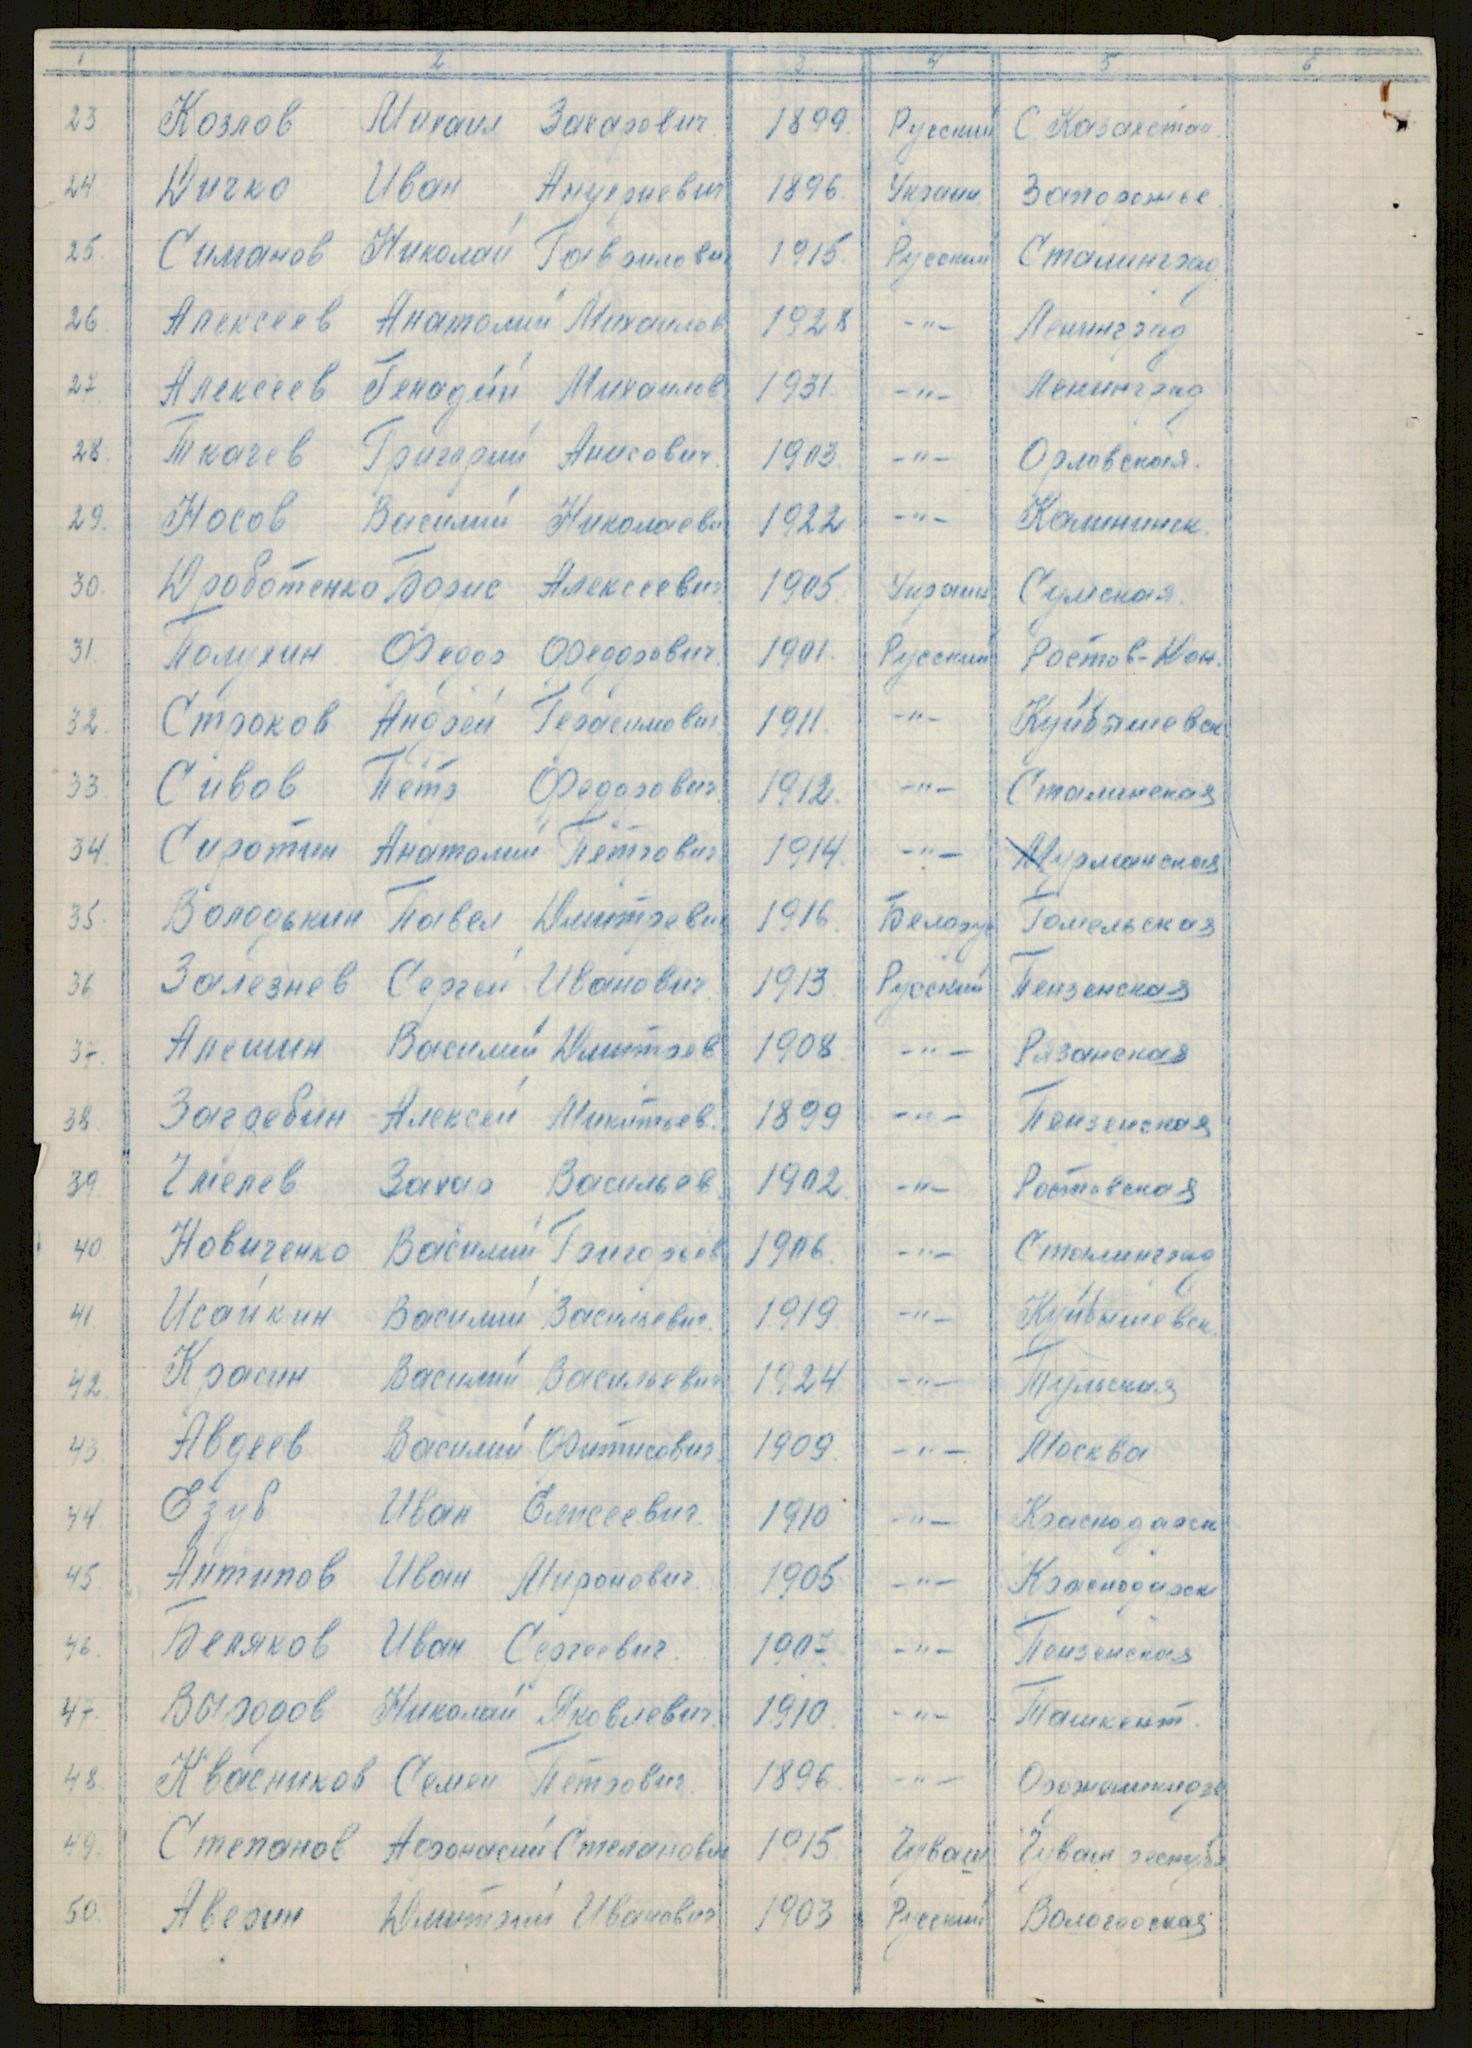 1 2 3 4 5 6
23. Козлов Михаил Захарович. 1899. Русский С. Казахстан.
24. Дичко Иван 1896. Украин. Запорожье.
25. Симанов Николай Гаврилович 1915. Русский Сталинград
26. Алексеев Анатолий Михаилов 1928 -"- Ленинград
27. Алексеев Генадий Михаилов 1931. -"- Ленинград
28. Ткачев Григорий Анисович. 1903. -"- Орловская.
29. Носов Василий Николаеви 1922 -"- Калининск.
30. Дроботенко Борис Алексеевич 1905. Украин Сумская.
31. Полухин Федор Федорович. 1901. Русский Ростов-Дон.
32. Строков Андрей Герасимович 1911. -"- Куйбышевск
33. Сивов Пётр Федорович. 1912. -"- Сталинская
34. Сиротин Анатолий Пётрович 1914. -"- Мурманская
35. Володькин Павел Дмитревич 1916. Белорус Гомельская
36. Залезнев Сергей Иванович. 1913. Русский Пензенская
37. Алешин Василий Дмитрев 1908. -"- Рязанская
38. Загребин Алексей Микитьев. 1899 -"- Пензенская
39. Чмелев Захар Васильев. 1902. -"- Ростовская
40. Новиченко Василий Григорьев 1906. -"- Сталинград
41. Исайкин Василий Васильевич. 1919. -"- Куйбышевск.
42. Красин Василий Васильевич 1924 -"- Тульская
43. Авдеев Василий Фитисович. 1909. -"- Москва
44. Езуб Иван Елисеевич. 1910 -"- Краснодарск
45. Антипов Иван Миронович. 1905 -"- Краснодарск
46. Беляков Иван Сергеевич. 1907. -"- Пензенская
47. Выродов Николай Яковлевич. 1910. -"- Ташкент.
48. Квасников Семен Пётрович. 1896. -"- Орджаникидзе
49. Степанов Афонасий Степанович 1915. Чуваш Чуваш республ
50. Аверин Дмитрий Иванович 1903 Русский Вологодская